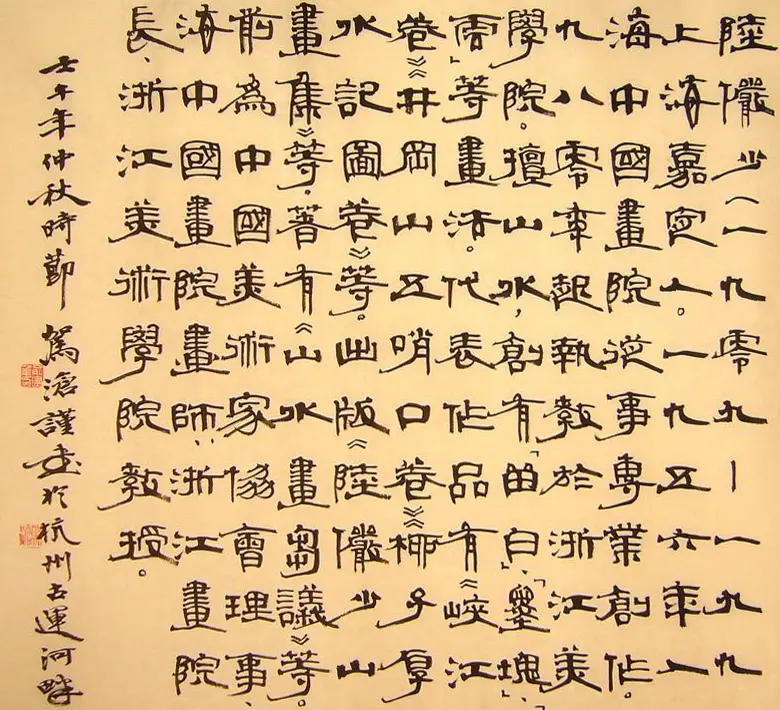 陸儼少(一九零九—一九九
上海嘉定人。一九五六年入
海中國畫院從事專業創作。
九八零年起執教於浙江美
學院。擅山水,創有「留白」、「墨塊」、
雲」等畫法。代表作品有《峽江
卷》《井岡山五哨口卷》《椰子厚
水記圖卷》等。出版《陸儼少山
畫集》等。著有《山水畫芻議》等。
前為中國美術家協會理事、
海中國畫院畫師、浙江畫院
長、浙江美術學院教授。
壬午年仲秋時節 駕滄謹書於杭州古運河畔